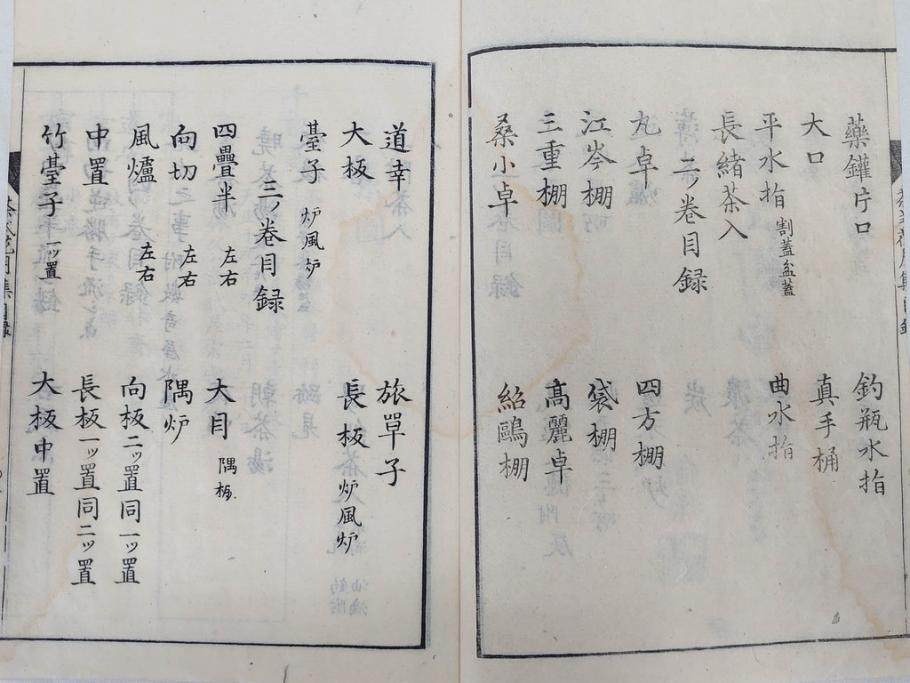 藥鑵片口　釣瓶水指
大口　真手桶
平水指 割蓋盆蓋　曲水指
長緒茶入
二ッ卷目録
丸卓　四方棚
江岑棚　袋棚
三重棚　高麗卓
桑小卓　紹鷗棚
道幸　旅單子
大板　長板 炉風炉
臺子 炉風炉
三ッ卷目録
四疊半 左右　大目 隅板
向切 左右　隅炉
風爐 左右　向板二ッ置同一ッ置
中置　長板一ッ置同二ッ置
竹臺子 一ッ置　大板中置